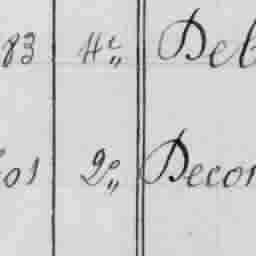 83 4e,, Deb
601 2e,, Decor